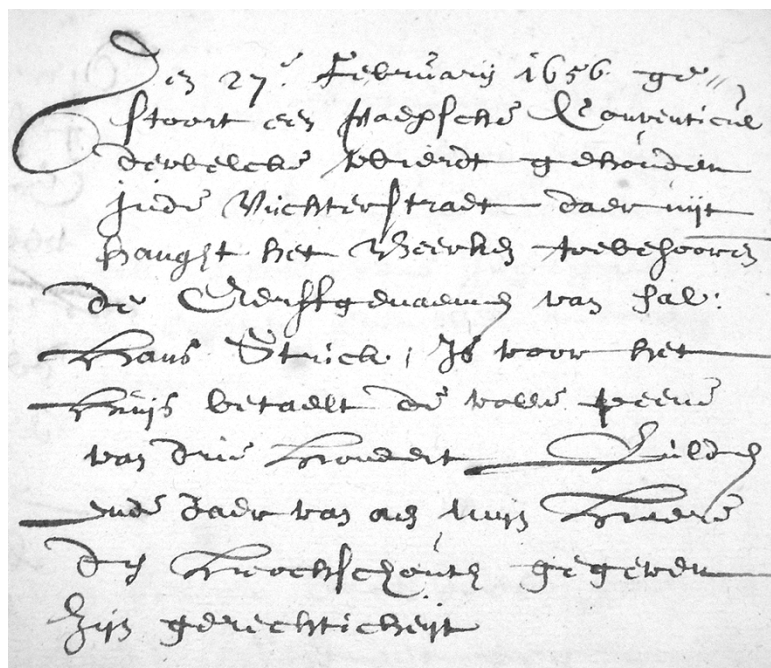 Den 27.e Februarij 1656 ge„
stoort een paepsche Conventicul
dewelcke wierdt gehouden
inde Vuchterstraet daer uijt
hanght het Veerken toebehooren
de Erffgenaemen van sal:
Hans Strick, Is voor het
Huijs betaelt de volle peene
van drie hondert Gulden
ende daer van aen mijn Heere
den Hoochschouth gegeven
Zijn gerechticheijt